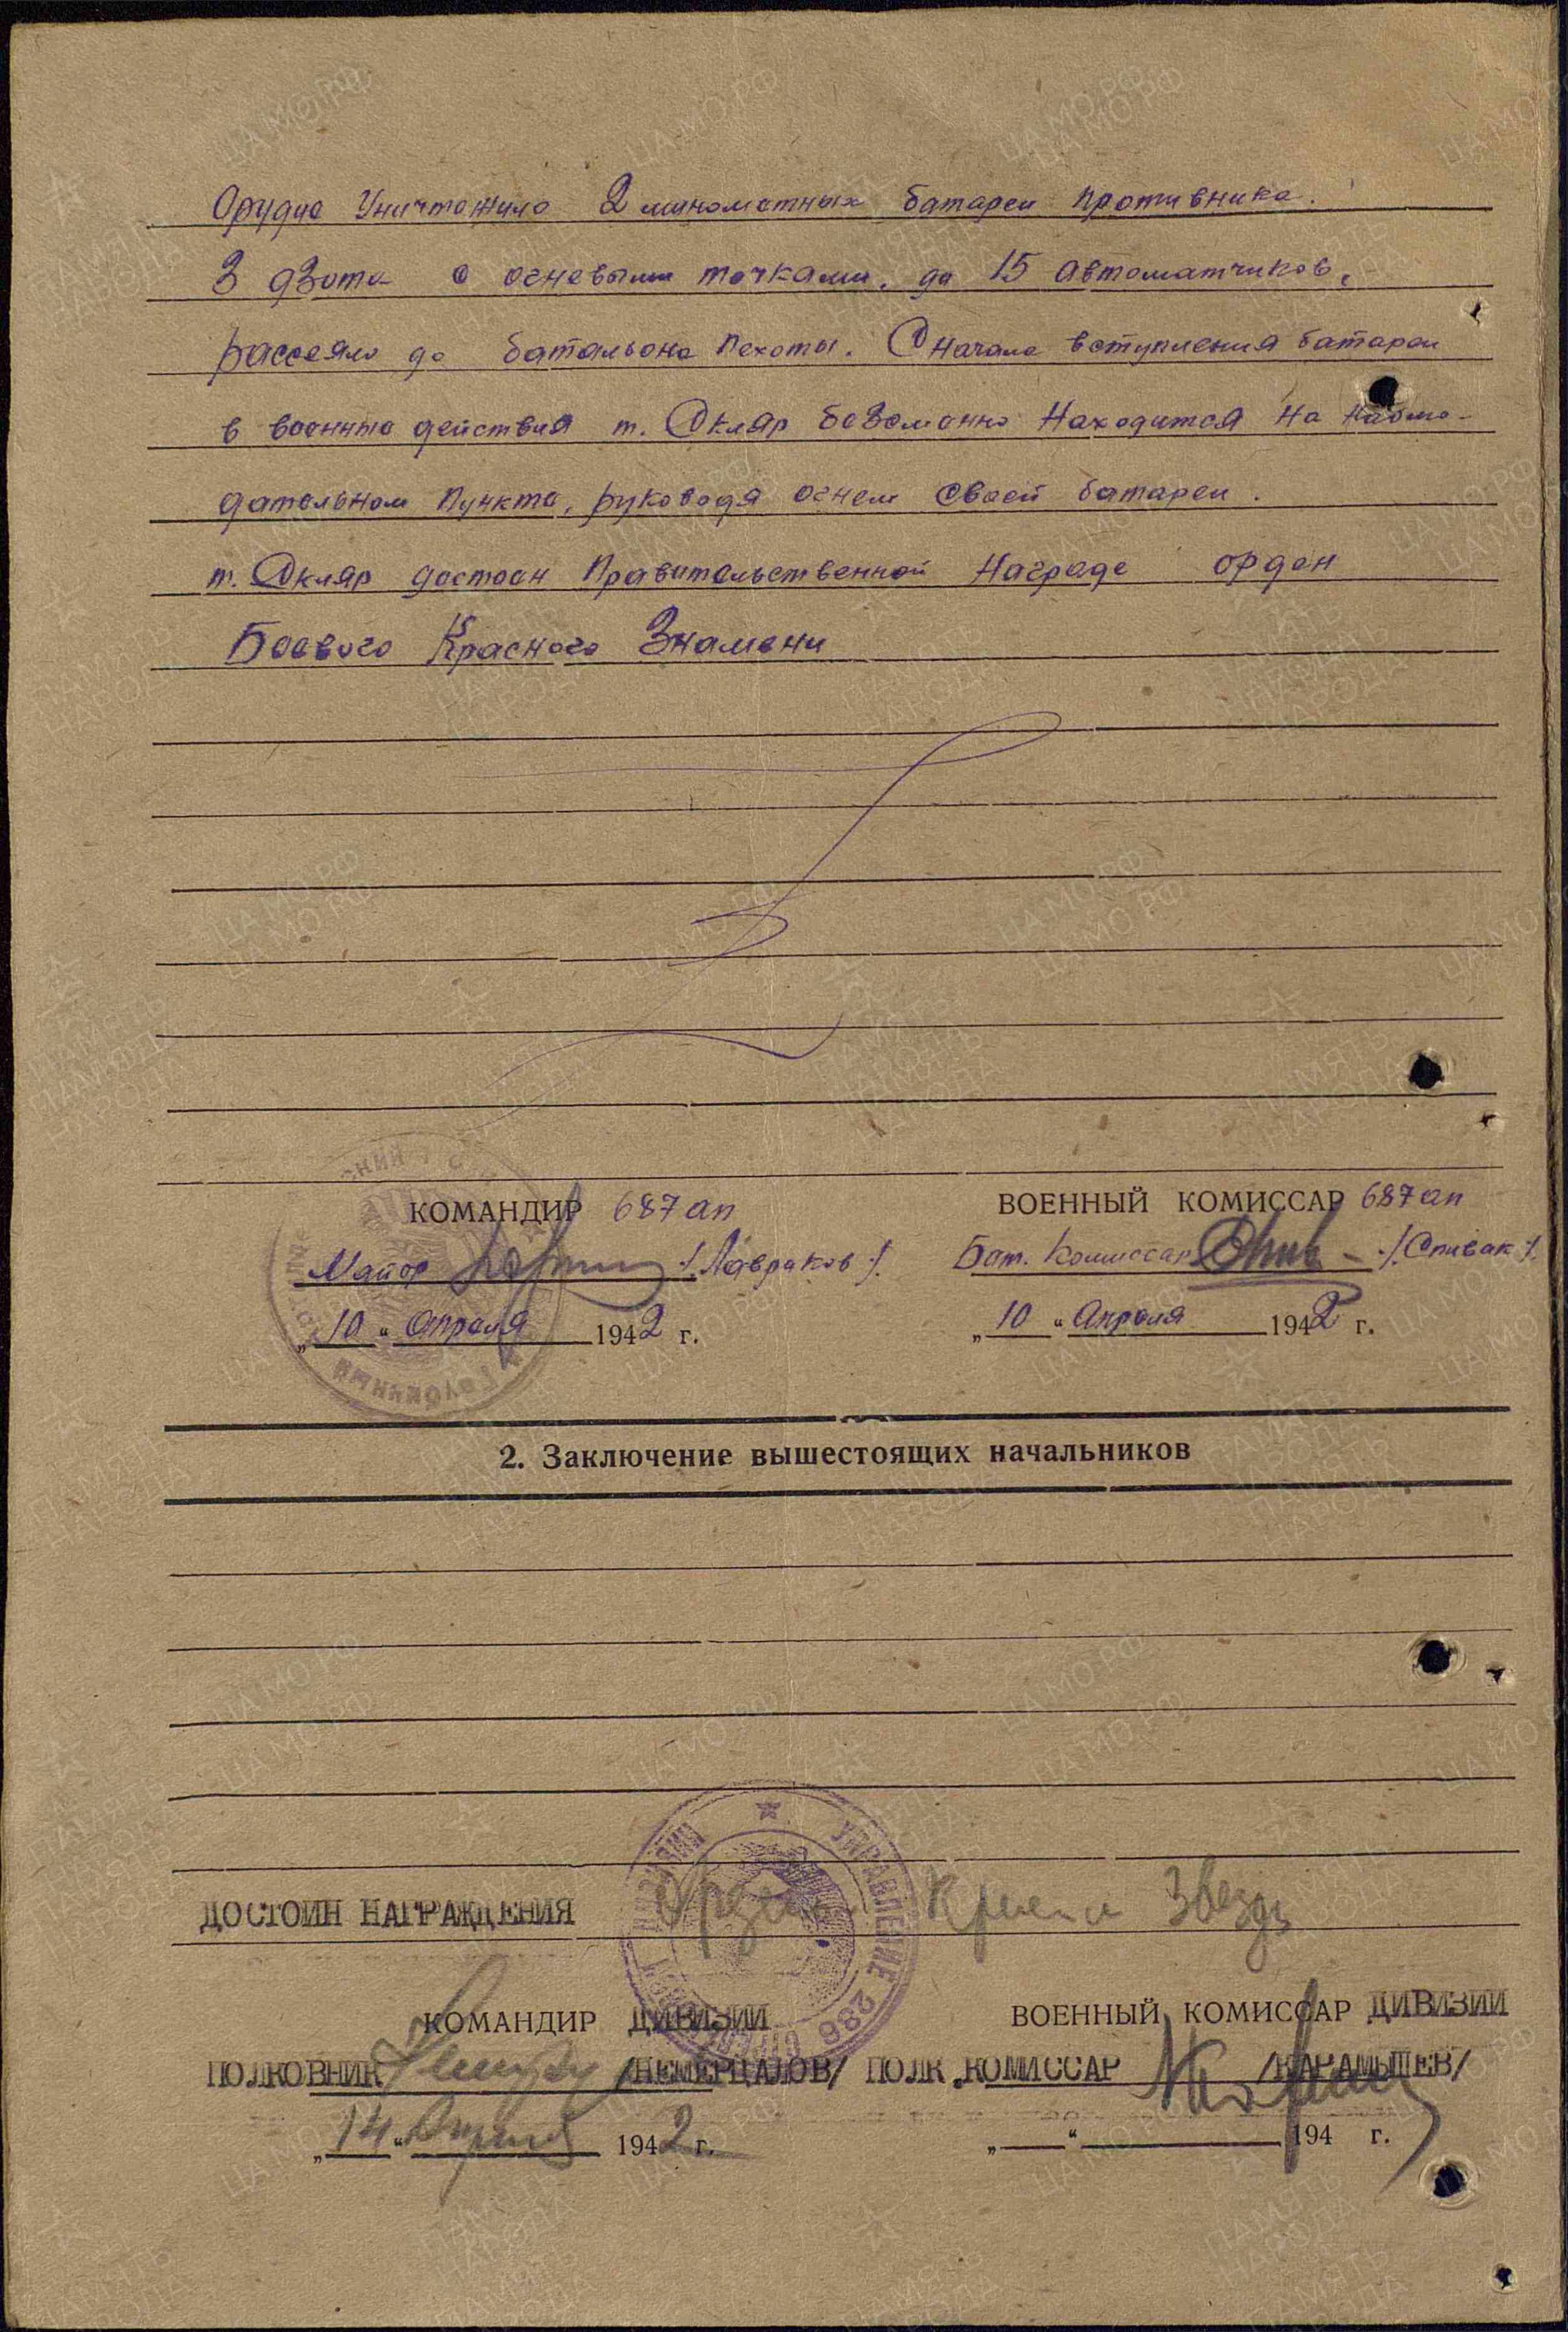 Орудие Уничтожило 2 минометных батареи противника.
3 дзота с огневыми точками, до 15 автоматчиков,
рассеяло до батальона пехоты. С начала вступления батареи
в военные действия т. Скляр безсменно находится на наблю-
дательном пункте, руководя огнем своей батареи.
т. Скляр достоен Правительственной Награде орден
Боевого Красного Знамени
КОМАНДИР 687 ап
Майор /Лавраков/.
„10“ Апреля 1942 г.
ВОЕННЫЙ КОМИССАР 687 ап
Бат. Комиссар /Спивак/.
„10“ Апреля 1942 г.
2. Заключение вышестоящих начальников
ДОСТОИН НАГРАЖДЕНИЯ Орденом Красная Звезда
УПРАВЛЕНИЕ 286 ДИВИЗИИ
КОМАНДИР ДИВИЗИИ
ПОЛКОВНИК /НЕМЕРЦАЛОВ/
„14“ Апреля 1942 г.
ВОЕННЫЙ КОМИССАР ДИВИЗИИ
ПОЛК.КОМИССАР /КАРАМЫШЕВ/
„ “ 194 г.
ЦА МО.РФ
ПАМЯТЬ
НАРОДА